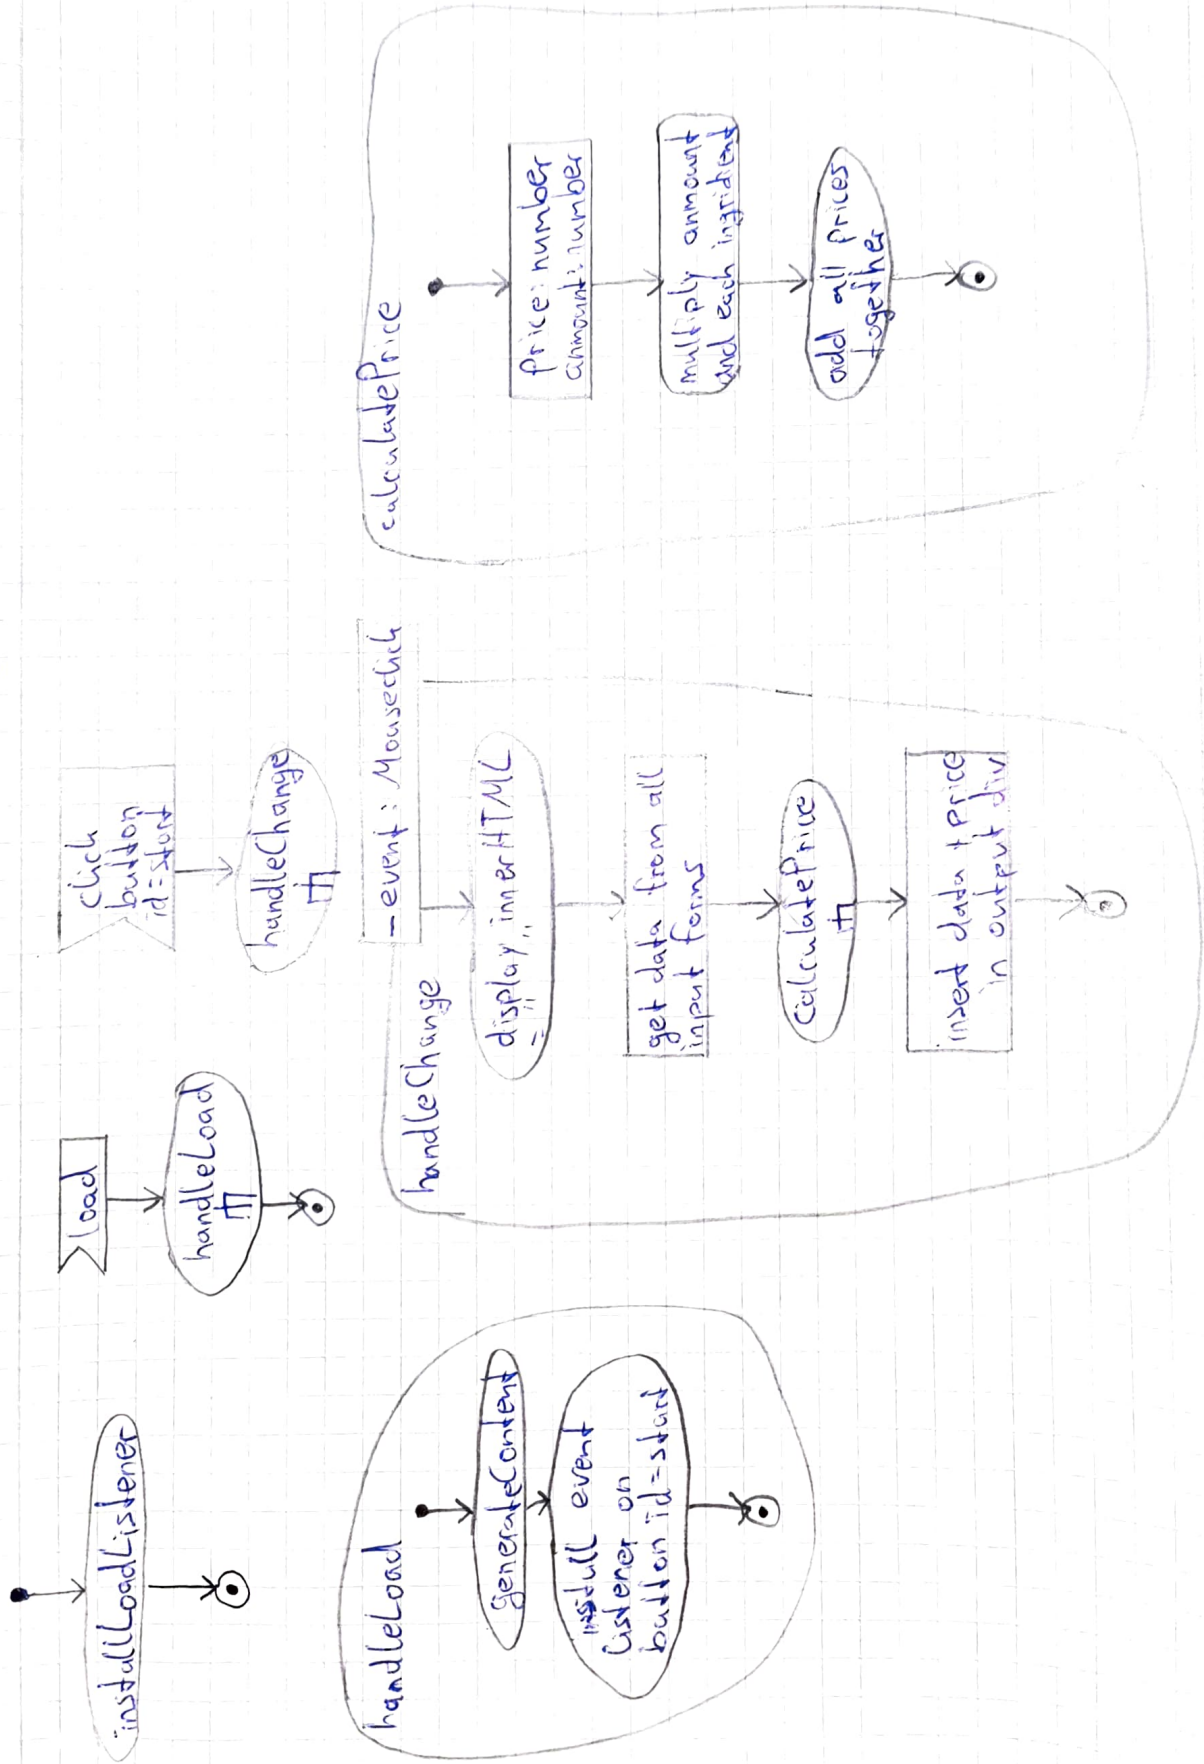 installLoadListener
load
handleLoad
click
button
id=start
handleChange
handleLoad
generateContent
install event
listener on
button id=start
event: Mouseclick
handleChange
display innerHTML
get data from all
input forms
CalculatePrice
insert data + price
in output div
calculatePrice
Price: number
anmount: number
multiply anmount
and each ingridient
add all prices
together